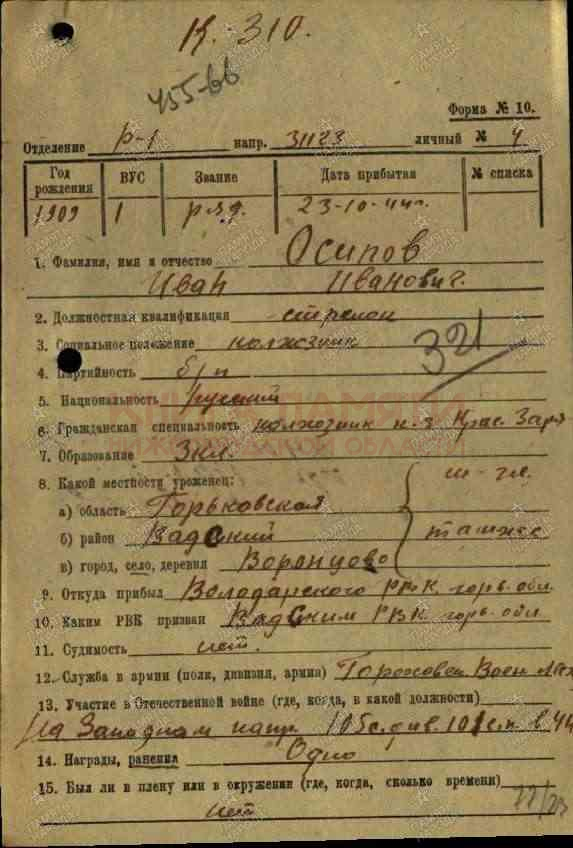 К. 310.
455-вв
Форма № 10.
Отделение Р-1 напр. 31123 личный № 4
Год рождения ВУС Звание Дата прибытая № списка
1909 1 ряд. 23-10-44г.
1. Фамилия, имя и отчество Осипов
Иван Иванович.
2. Должностная квалификация стрелок
3. Социальное положение колхозник
321
4. Партийность б/п
5. Национальность русский
КНИГА ПАМЯТИ
НИЖЕГОРОДСКОЙ ОБЛАСТИ
6. Гражданская специальность колхозник к-з Крас. Заря
7. Образование 3 кл.
8. Какой местности уроженец:
а) область Горьковская
б) район Вадский
в) город, село, деревня Воронцово
9. Откуда прибыл Володарского РВК горьк. обл.
10. Каким РВК призван Вадским РВК горьк. обл
11. Судимость нет.
12. Служба в армии (полк, дивизия, армия) Гороховец Воен
13. Участие в Отечественной войне (где, когда, в какой должности)
На Западном напр. 105 с. див. 101 с.п. в 44
14. Награды, ранения Одно
15. Был ли в плену или в окружении (где, когда, сколько времени)
нет